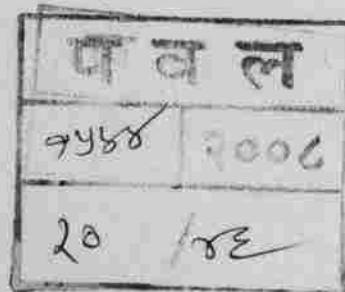 प व ल
१५४४ २००८
२० /४६